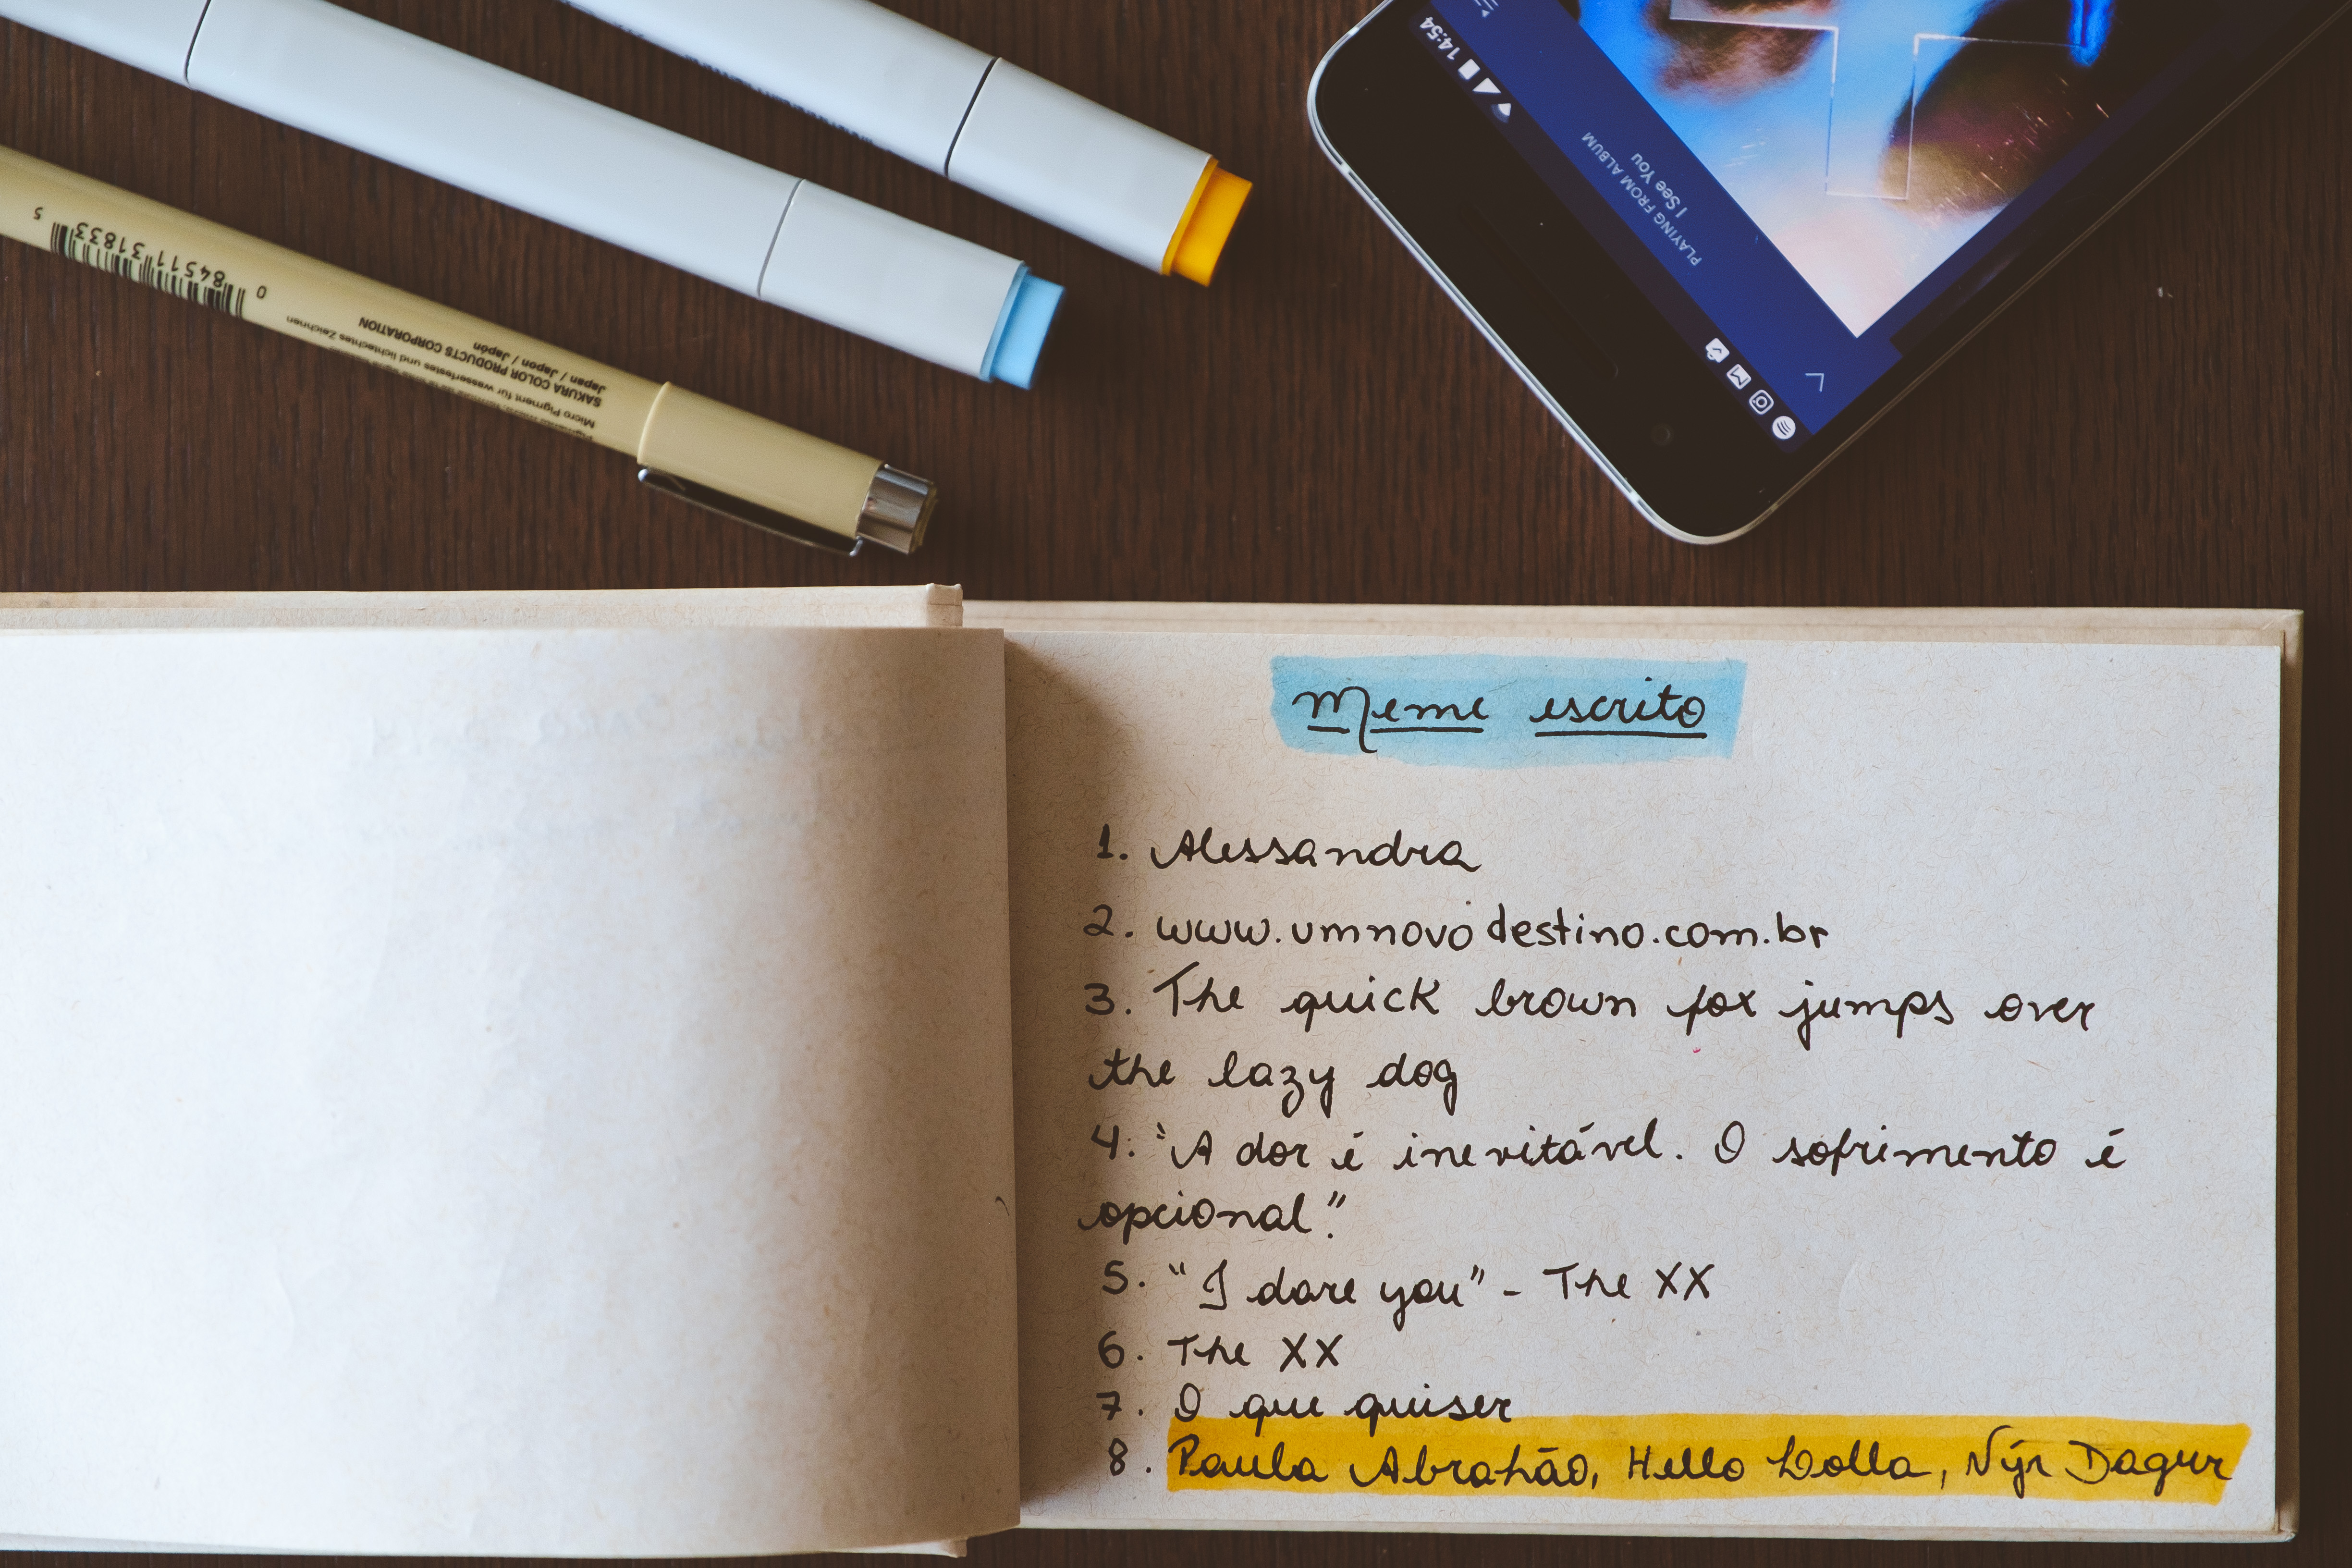 14:54
PLAYING FROM ALBUM
I See You
0 84511 31833 5
Japan / Japon / Japón
SAKURA COLOR PRODUCTS CORPORATION
Micro Pigment für wasserfestes und lichtechtes Zeichnen
Meme escrito
1. Alessandra
2. www.umnovodestino.com.br
3. The quick brown fox jumps over
the lazy dog
4. "A dor é inevitável. O sofrimento é
opcional".
5. "I dare you" - The XX
6. The XX
7. O que quiser
8. Paula Abrahão, Hello Lolla, Nýr Dagur